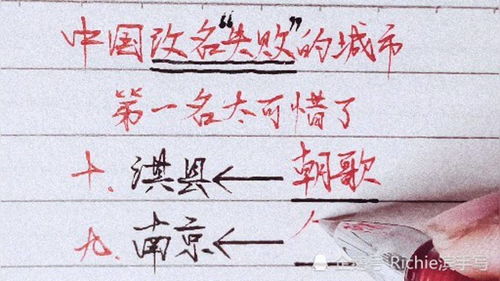 中国改名“失败”的城市
第一名太可惜了
十、淇县←朝歌
九、南京←
Richie滨手写